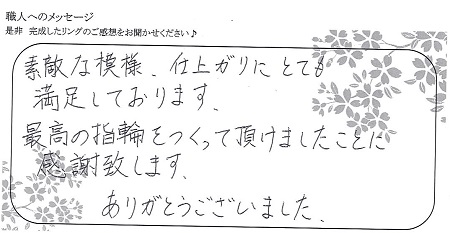 職人へのメッセージ
是非 完成したリングのご感想をお聞かせください♪
素敵な模様、仕上がりにとても
満足しております、
最高の指輪をつくって頂けましたことに
感謝致します、
ありがとうございました、